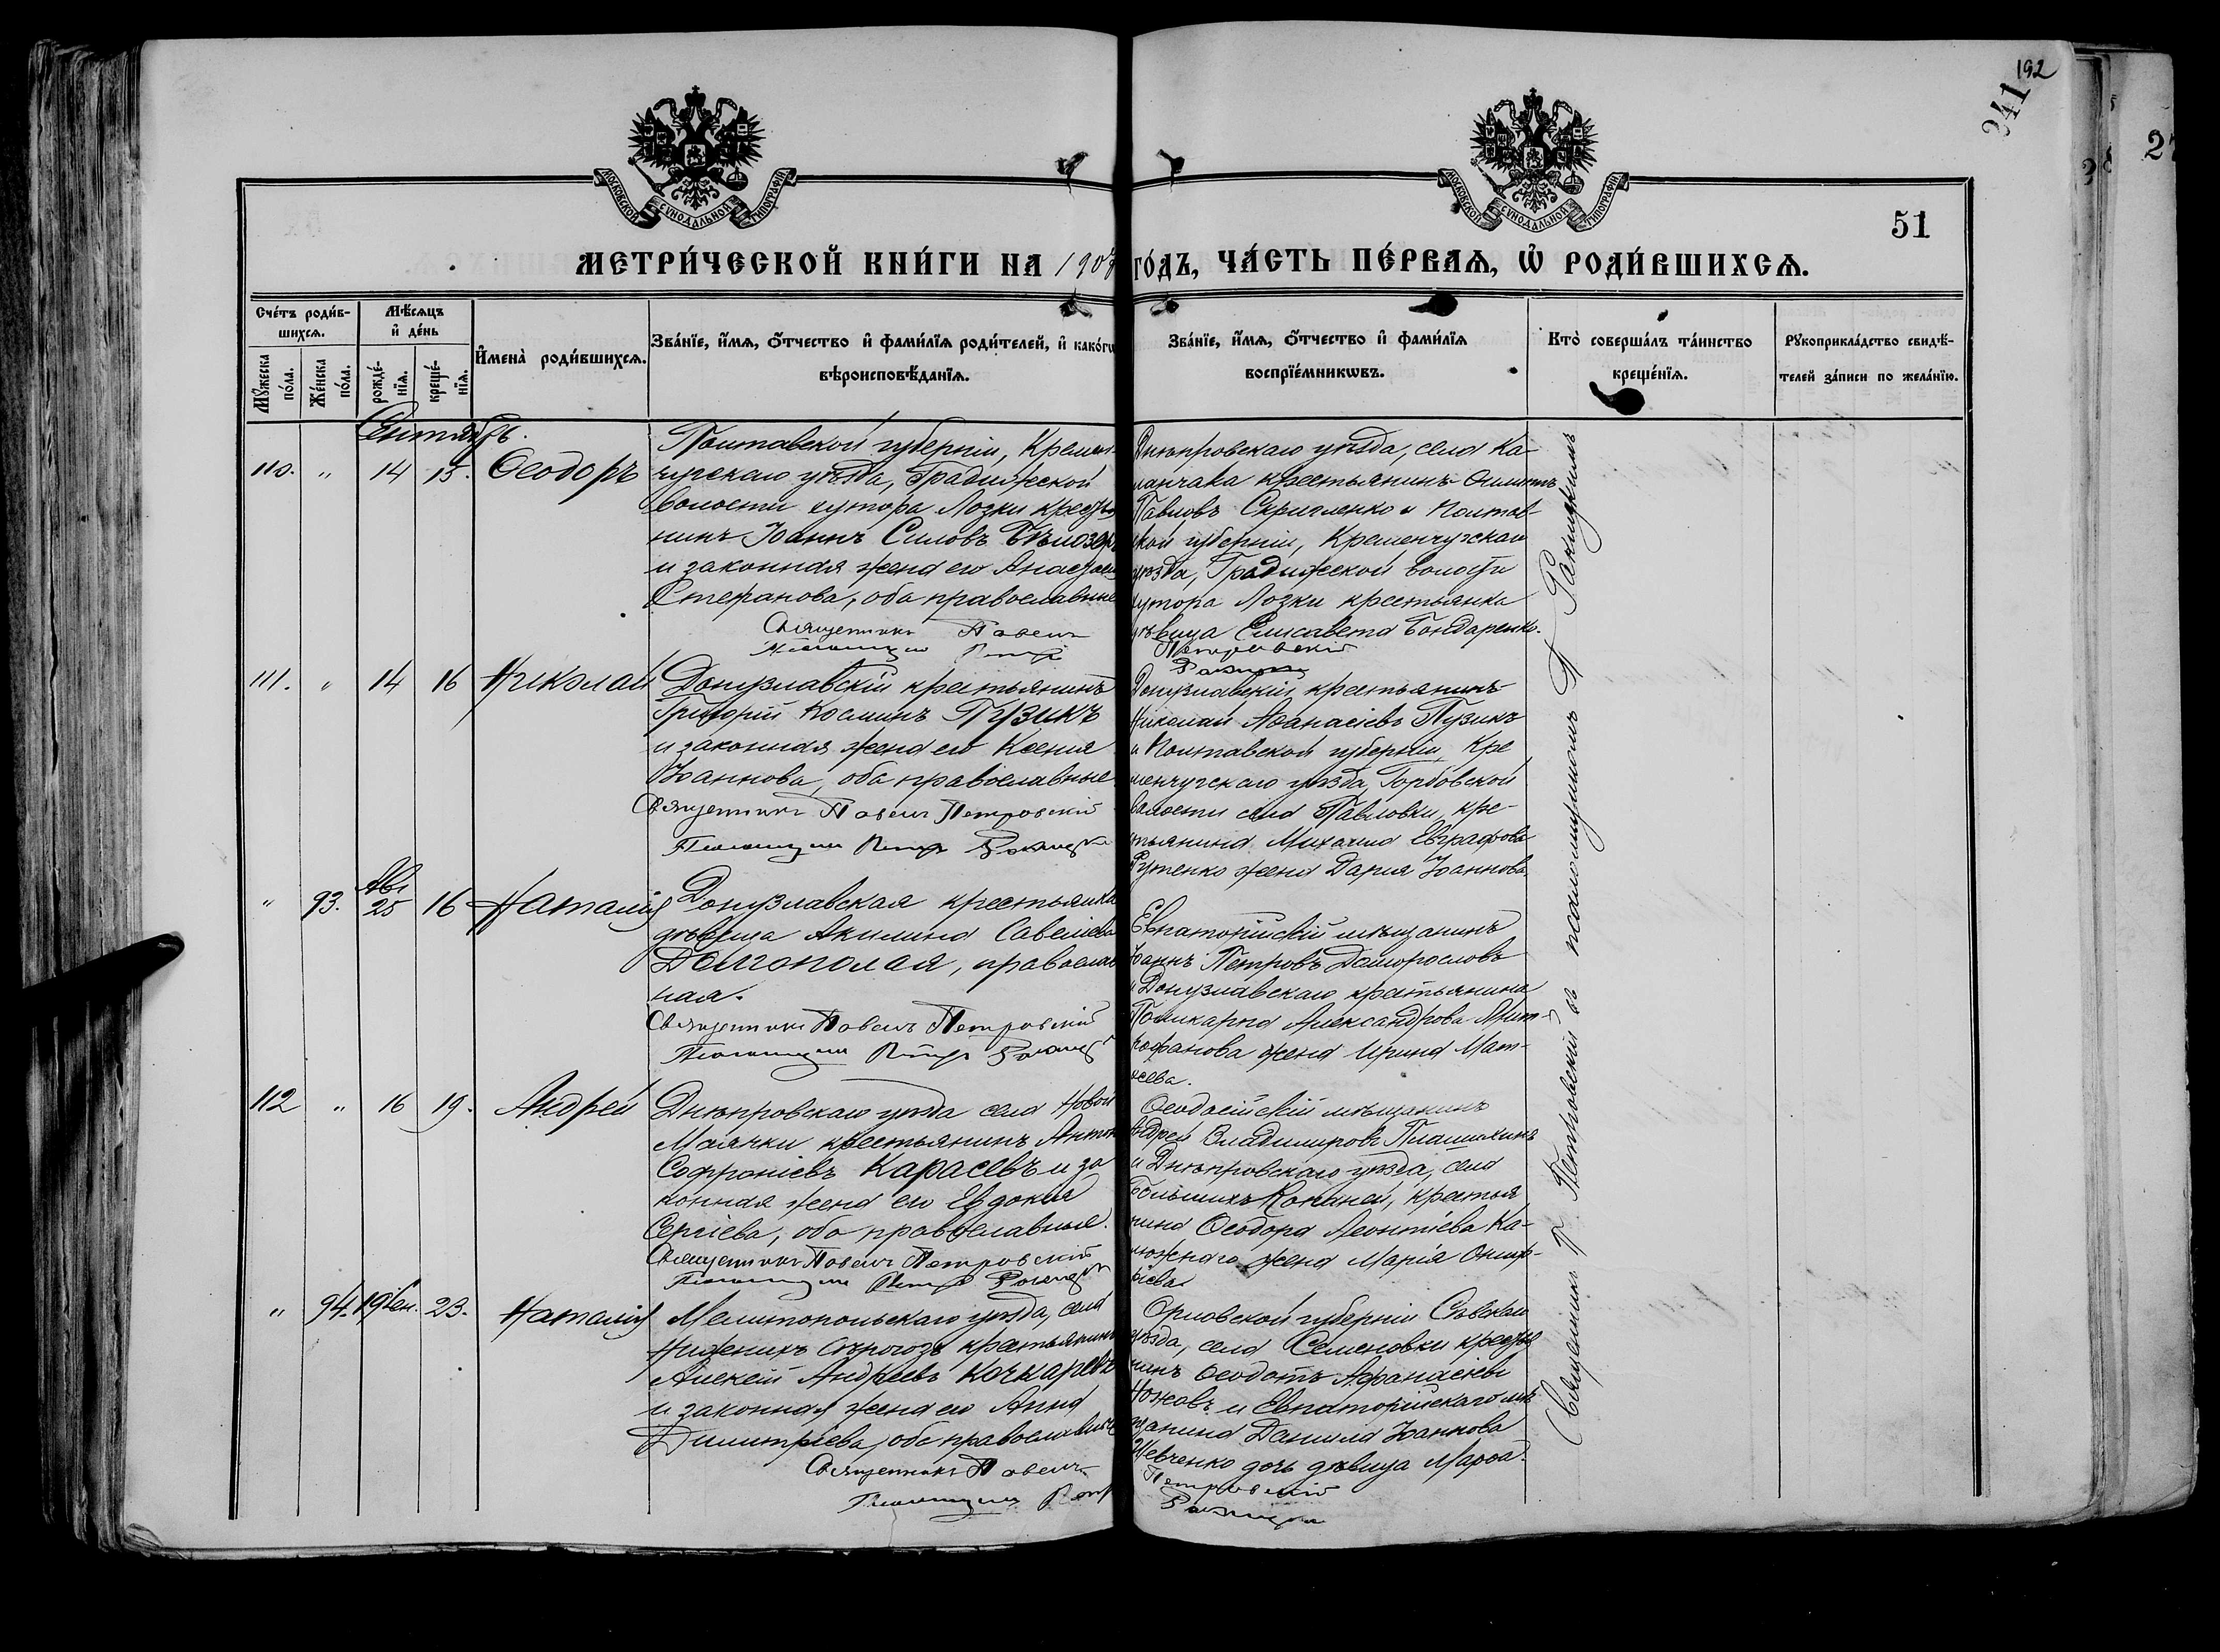 192
241
51
МОСКОВСКОЙ СѴНОДАЛЬНОЙ ТИПОГРАФІИ
МОСКОВСКОЙ СѴНОДАЛЬНОЙ ТИПОГРАФІИ
МЕТРИ́ЧЕСКОЙ КНИ́ГИ НА 190 ГО́ДЪ, ЧА́СТЬ ПЕ́РВАѦ, Ѡ҆ РОДИ́ВШИХСѦ.
Сче́тъ роди́в-
шихсѧ.
Мꙋ́жеска по́ла.
Же́нска по́ла.
Мѣ́сѧцъ
и҆ де́нь
рожде́-
нїѧ.
креще́-
нїѧ.
И҆мена̀ роди́вшихсѧ.
Зва́нїе, и҆́мѧ, ѻ҆́тчество и҆ фами́лїѧ роди́телей, и҆ како́гѡ
вѣроисповѣ́данїѧ.
Зва́нїе, и҆́мѧ, ѻ҆́тчество и҆ фами́лїѧ
воспрїе́мникѡвъ.
Кто̀ соверша́лъ та́инство
креще́нїѧ.
Рꙋкоприкла́дство свидѣ́-
телей за́писи по жела́нїю.
Сентябрь.
110. " 14 15. Ѳеодоръ
Полтавской губерніи, Кремен-
чугскаго уѣзда, Градижской
волости хутора Лозки крестья
нинъ Іоаннъ Силовъ Бѣлозеръ
и законная жена его Анастасія
Стефанова, оба православные
Священникъ Павелъ Петровскій
Псаломщикъ Петръ
Днѣпровскаго уѣзда, села Ка-
ланчака крестьянинъ
Павловъ Скриленко и Полтав
ской губерніи, Кременчугскаго
уѣзда, Градижской волости
хутора Лозки крестьянка
дѣвица Елисавета Бондаренко.
111. " 14 16 Николай
Донузлавскій крестьянинъ
Григорій Косминъ Пузикъ
и законная жена его Ксенія
Іоаннова, оба православные
Священникъ Павелъ Петровскій
Псаломщикъ Петръ
Донузлавскій крестьянинъ
Николай Аѳанасіевъ Пузикъ
и Полтавской губерніи, Кре
менчугскаго уѣзда, Горбовской
волости села Павловки, кре-
стьянина Михаила Евграфова
Руженко жена Дарія Іоаннова.
" 93. Авг 25 16 Наталія
Донузлавская крестьянка
дѣвица Акилина Савеліева
Долгополая, православ
ная.
Священникъ Павелъ Петровскій
Псаломщикъ Петръ
Евпаторійскій мѣщанинъ
Іоаннъ Петровъ Доморословъ
и Донузлавскаго крестьянина
Поликарпа Александрова Мит-
рофанова жена Ирина Мат-
ѳеева.
112 " 16 19. Андрей
Днѣпровскаго уѣзда села Новой
Маячки крестьянинъ Антонъ
Софроніевъ Карасевъ и за
конная жена его Евдокія
Сергіева, оба православные.
Священникъ Павелъ Петровскій
Псаломщикъ Петръ
Ѳеодосійскій мѣщанинъ
Андрей Владимировъ
и Днѣпровскаго уѣзда, села
Большихъ Копаней, крестья
нина Ѳеодора Леонтіева Ка-
люжнаго жена Марія Онуф-
ріева.
" 94. 19 Сен. 23. Наталія
Мелитопольскаго уѣзда, села
Нижнихъ Сѣрогозъ крестьянинъ
Алексѣй Андреевъ Кочкаревъ
и законная жена его Анна
Димитріева, оба православные
Священникъ Павелъ Петровскій
Псаломщикъ Петръ
Орловской губерніи Сѣвскаго
уѣзда, села Семеновки крестья
нинъ Ѳеодотъ Афанасіевъ
Ножовъ и Евпаторійскаго мѣ
щанина Даніила Іоаннова
Шевченко дочь дѣвица Марѳа.
Священникъ П. Петровскій съ псаломщикомъ П.